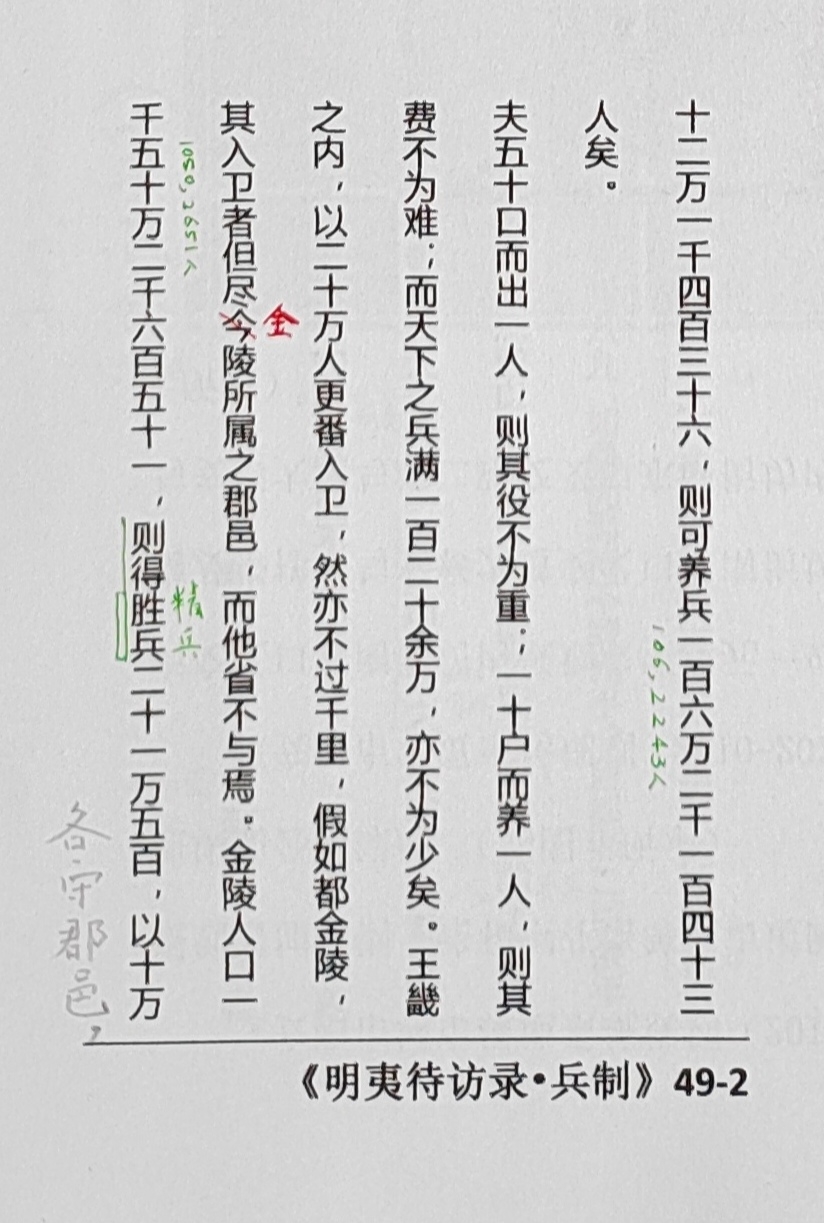 十二万一千四百三十六，则可养兵一百六万二千一百四十三
106,2243人
人矣。
夫五十口而出一人，则其役不为重；一十户而养一人，则其
费不为难；而天下之兵满一百二十余万，亦不为少矣。王畿
之内，以二十万人更番入卫，然亦不过千里，假如都金陵，
金
其入卫者但尽今陵所属之郡邑，而他省不与焉。金陵人口一
1050,2651人
精兵
千五十万二千六百五十一，则得胜兵二十一万五百，以十万
各守郡邑，
《明夷待访录•兵制》49-2